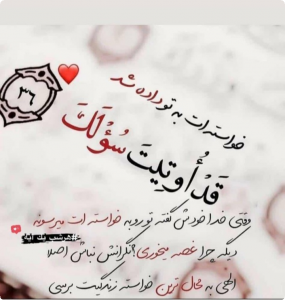 خواسته ات به تو داده شد
٣٦
قَدْ أُوتِيتَ سُؤْلَكَ
وقتی خدا خودش گفته تورو به خواسته ات میرسونه
#هرشب یک آیه
دیگه چرا غصه میخوری؟ نگرانش نباش اصلا
الهی به محال ترین خواسته زندگیت برسی